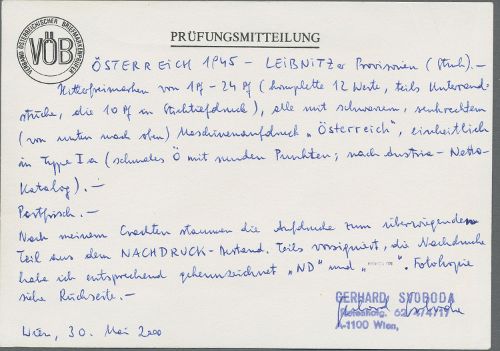 VERBAND ÖSTERREICHISCHER BRIEFMARKENPRÜFER
VÖB
PRÜFUNGSMITTEILUNG
ÖSTERREICH 1945 - LEIBNITZer Provisorien (Steierm.).-
Hitlerfreimarken von 1 Pf - 24 Pf (komplette 12 Werte, teils Unterrand-
stücke, die 10 Pf in Stichtiefdruck), alle mit schwarzem, senkrechtem
(von unten nach oben) Maschinenaufdruck „Österreich", einheitlich
in Type I a (schmales Ö mit runden Punkten; nach Austria-Netto-
Katalog).-
Postfrisch.-
Nach meinem Erachten stammen die Aufdrucke zum überwiegenden
Teil aus dem NACHDRUCK-Bestand. Teils vorsigniert, die Nachdrucke
habe ich entsprechend gekennzeichnet „ND" und „ ". Fotokopie
siehe Rückseite.-
GERHARD SVOBODA
A-1100 Wien,
Wien, 30. Mai 2000